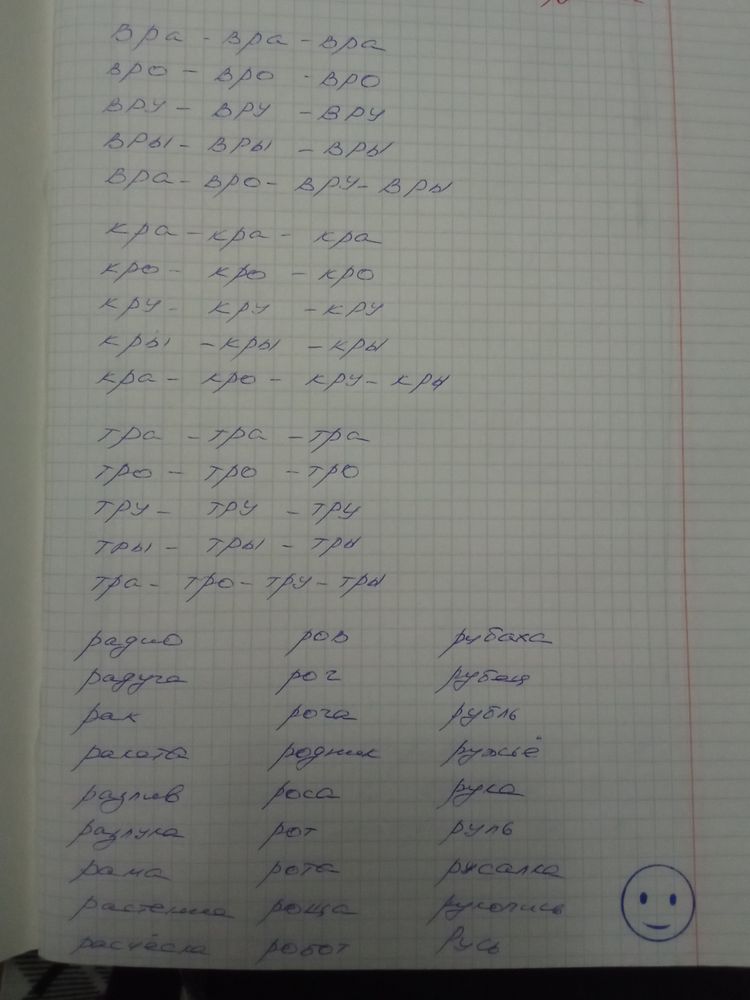 вра - вра - вра
вро - вро - вро
вру - вру - вру
вры - вры - вры
вра - вро - вру - вры
кра - кра - кра
кро - кро - кро
кру - кру - кру
кры - кры - кры
кра - кро - кру - кры
тра - тра - тра
тро - тро - тро
тру - тру - тру
тры - тры - тры
тра - тро - тру - тры
радио ров рубаха
радуга рог
рак рубль
ракета родник ружьё
разлив роса рука
разлука рот руль
рама рота русалка
роща рукопись
расчёска робот Русь